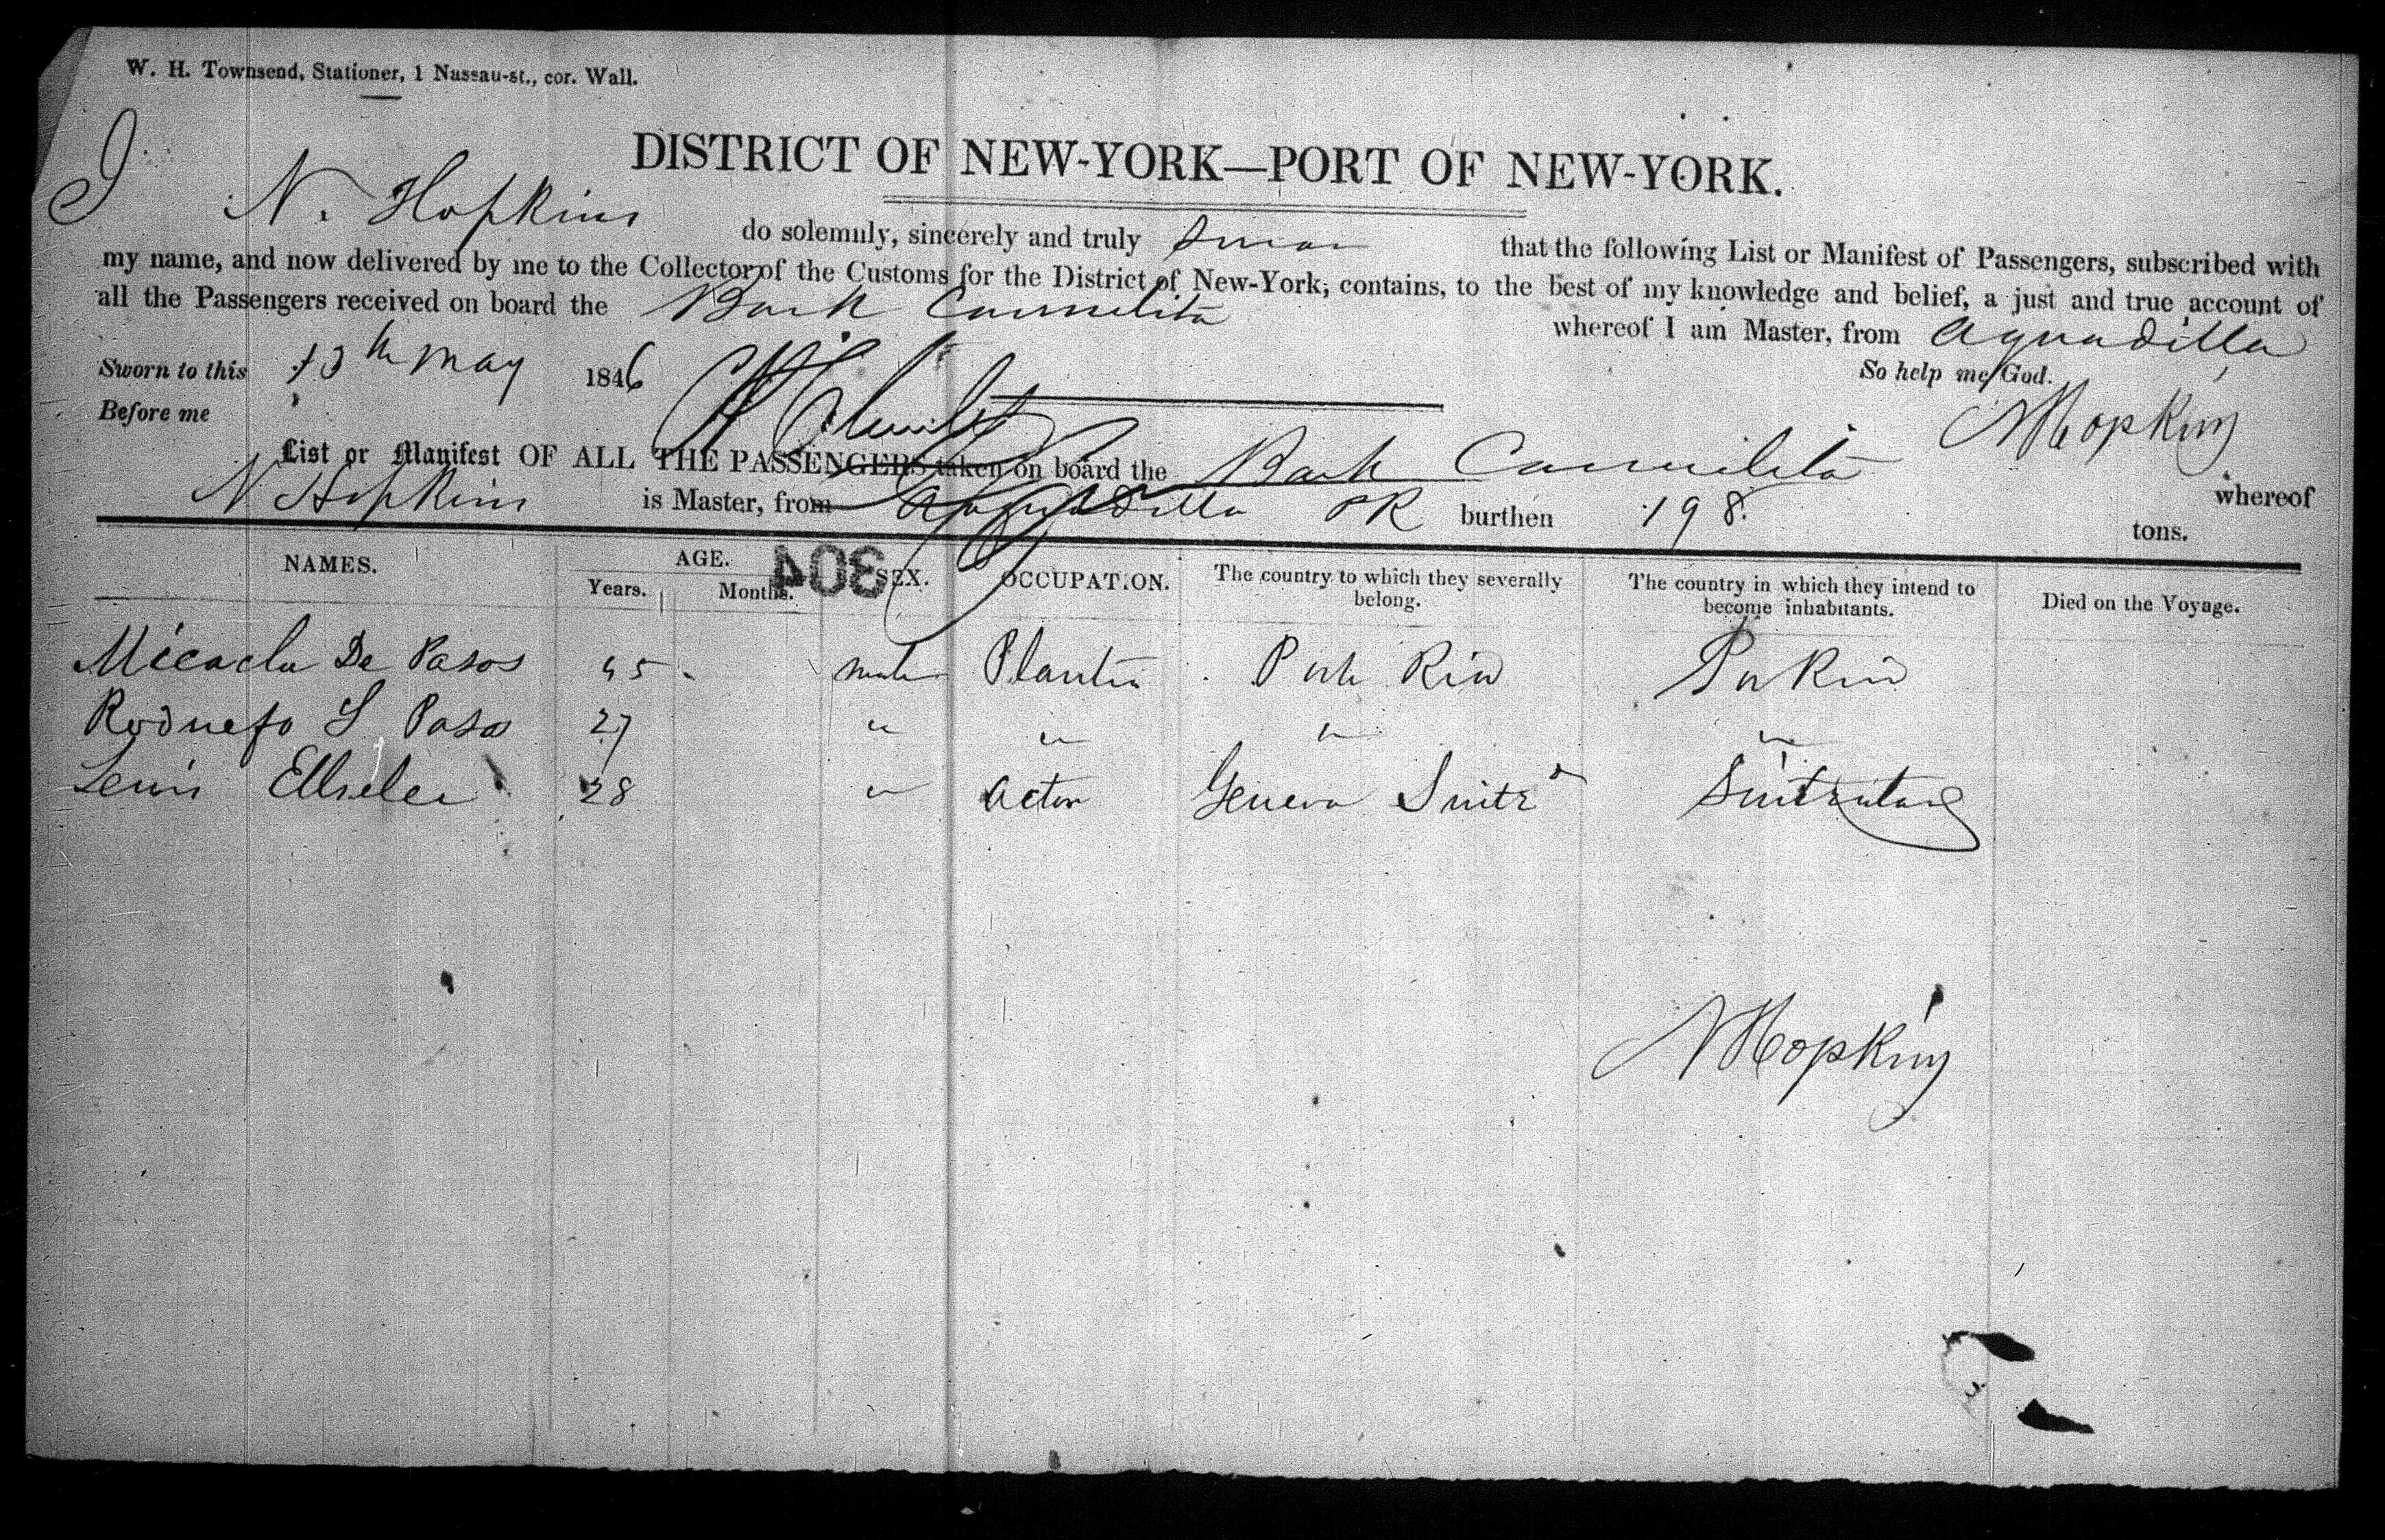 W. H. Townsend, Stationer, 1 Nassau-st., cor. Wall.
DISTRICT OF NEW-YORK—PORT OF NEW-YORK.
I N. Hopkins do solemnly, sincerely and truly swear that the following List or Manifest of Passengers, subscribed with
my name, and now delivered by me to the Collector of the Customs for the District of New-York, contains, to the best of my knowledge and belief, a just and true account of
all the Passengers received on board the Bark Carmelita whereof I am Master, from Aguadilla
Sworn to this 13th May 1846 So help me God.
Before me N Hopkins
List or Manifest OF ALL THE PASSENGERS taken on board the Bark Carmelita whereof
N Hopkins is Master, from Aguadilla PR burthen 198 tons.
NAMES. AGE. Years. Months. SEX. OCCUPATION. The country to which they severally belong. The country in which they intend to become inhabitants. Died on the Voyage.
304
Micaela De Pasos 45 male Planter Porto Rico Po Rico
S Pasos 27 " " " "
Lewis 28 " Actor Geneva Switzd
N Hopkins